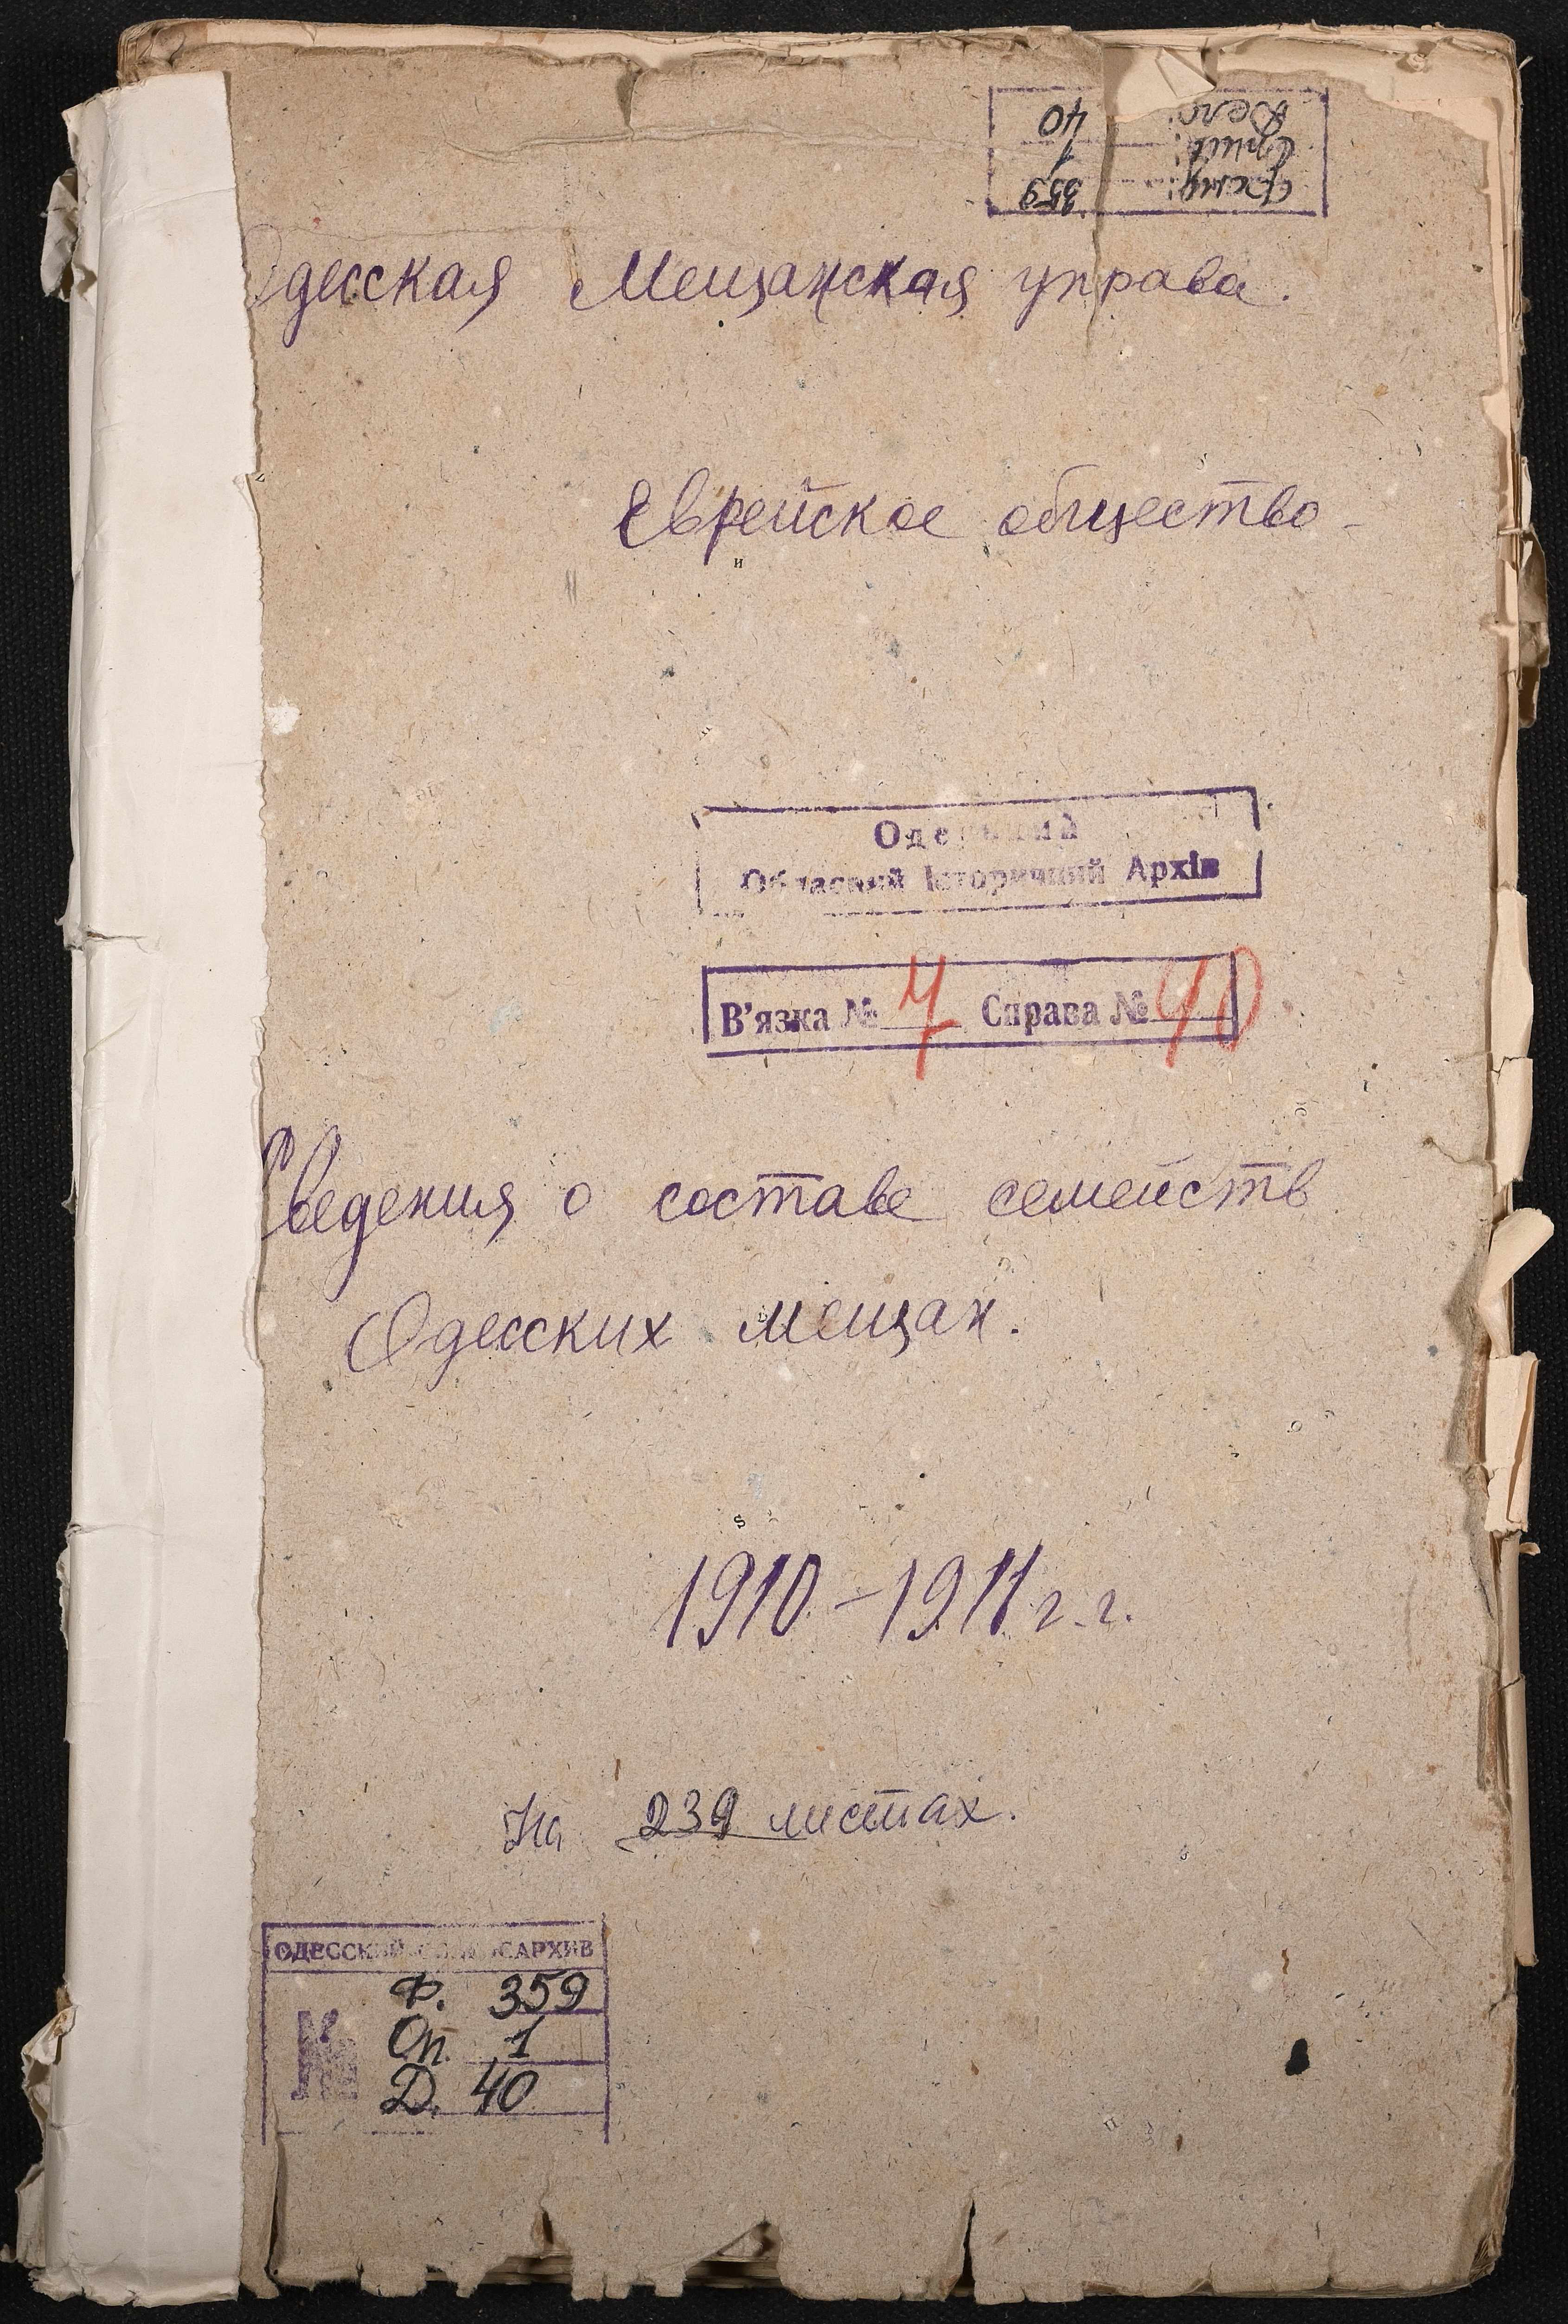 Фонд: 359
Опись: 1
Дело: 40
Одесская Мещанская управа.
Еврейское общество
Обласний Історичний Архів
В'язка № 7 Справа № 40
Сведения о составе семейств
Одесских мещан.
1910-1911 г.г.
На 239 листах.
ОДЕССКИЙ
№
Ф. 359
Оп. 1
Д. 40